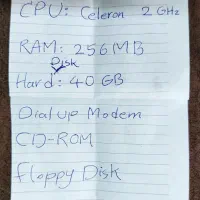 CPU: Celeron 2 GHz
RAM: 256 MB
Hard Disk: 40 GB
Dial up Modem
CD-ROM
floppy Disk